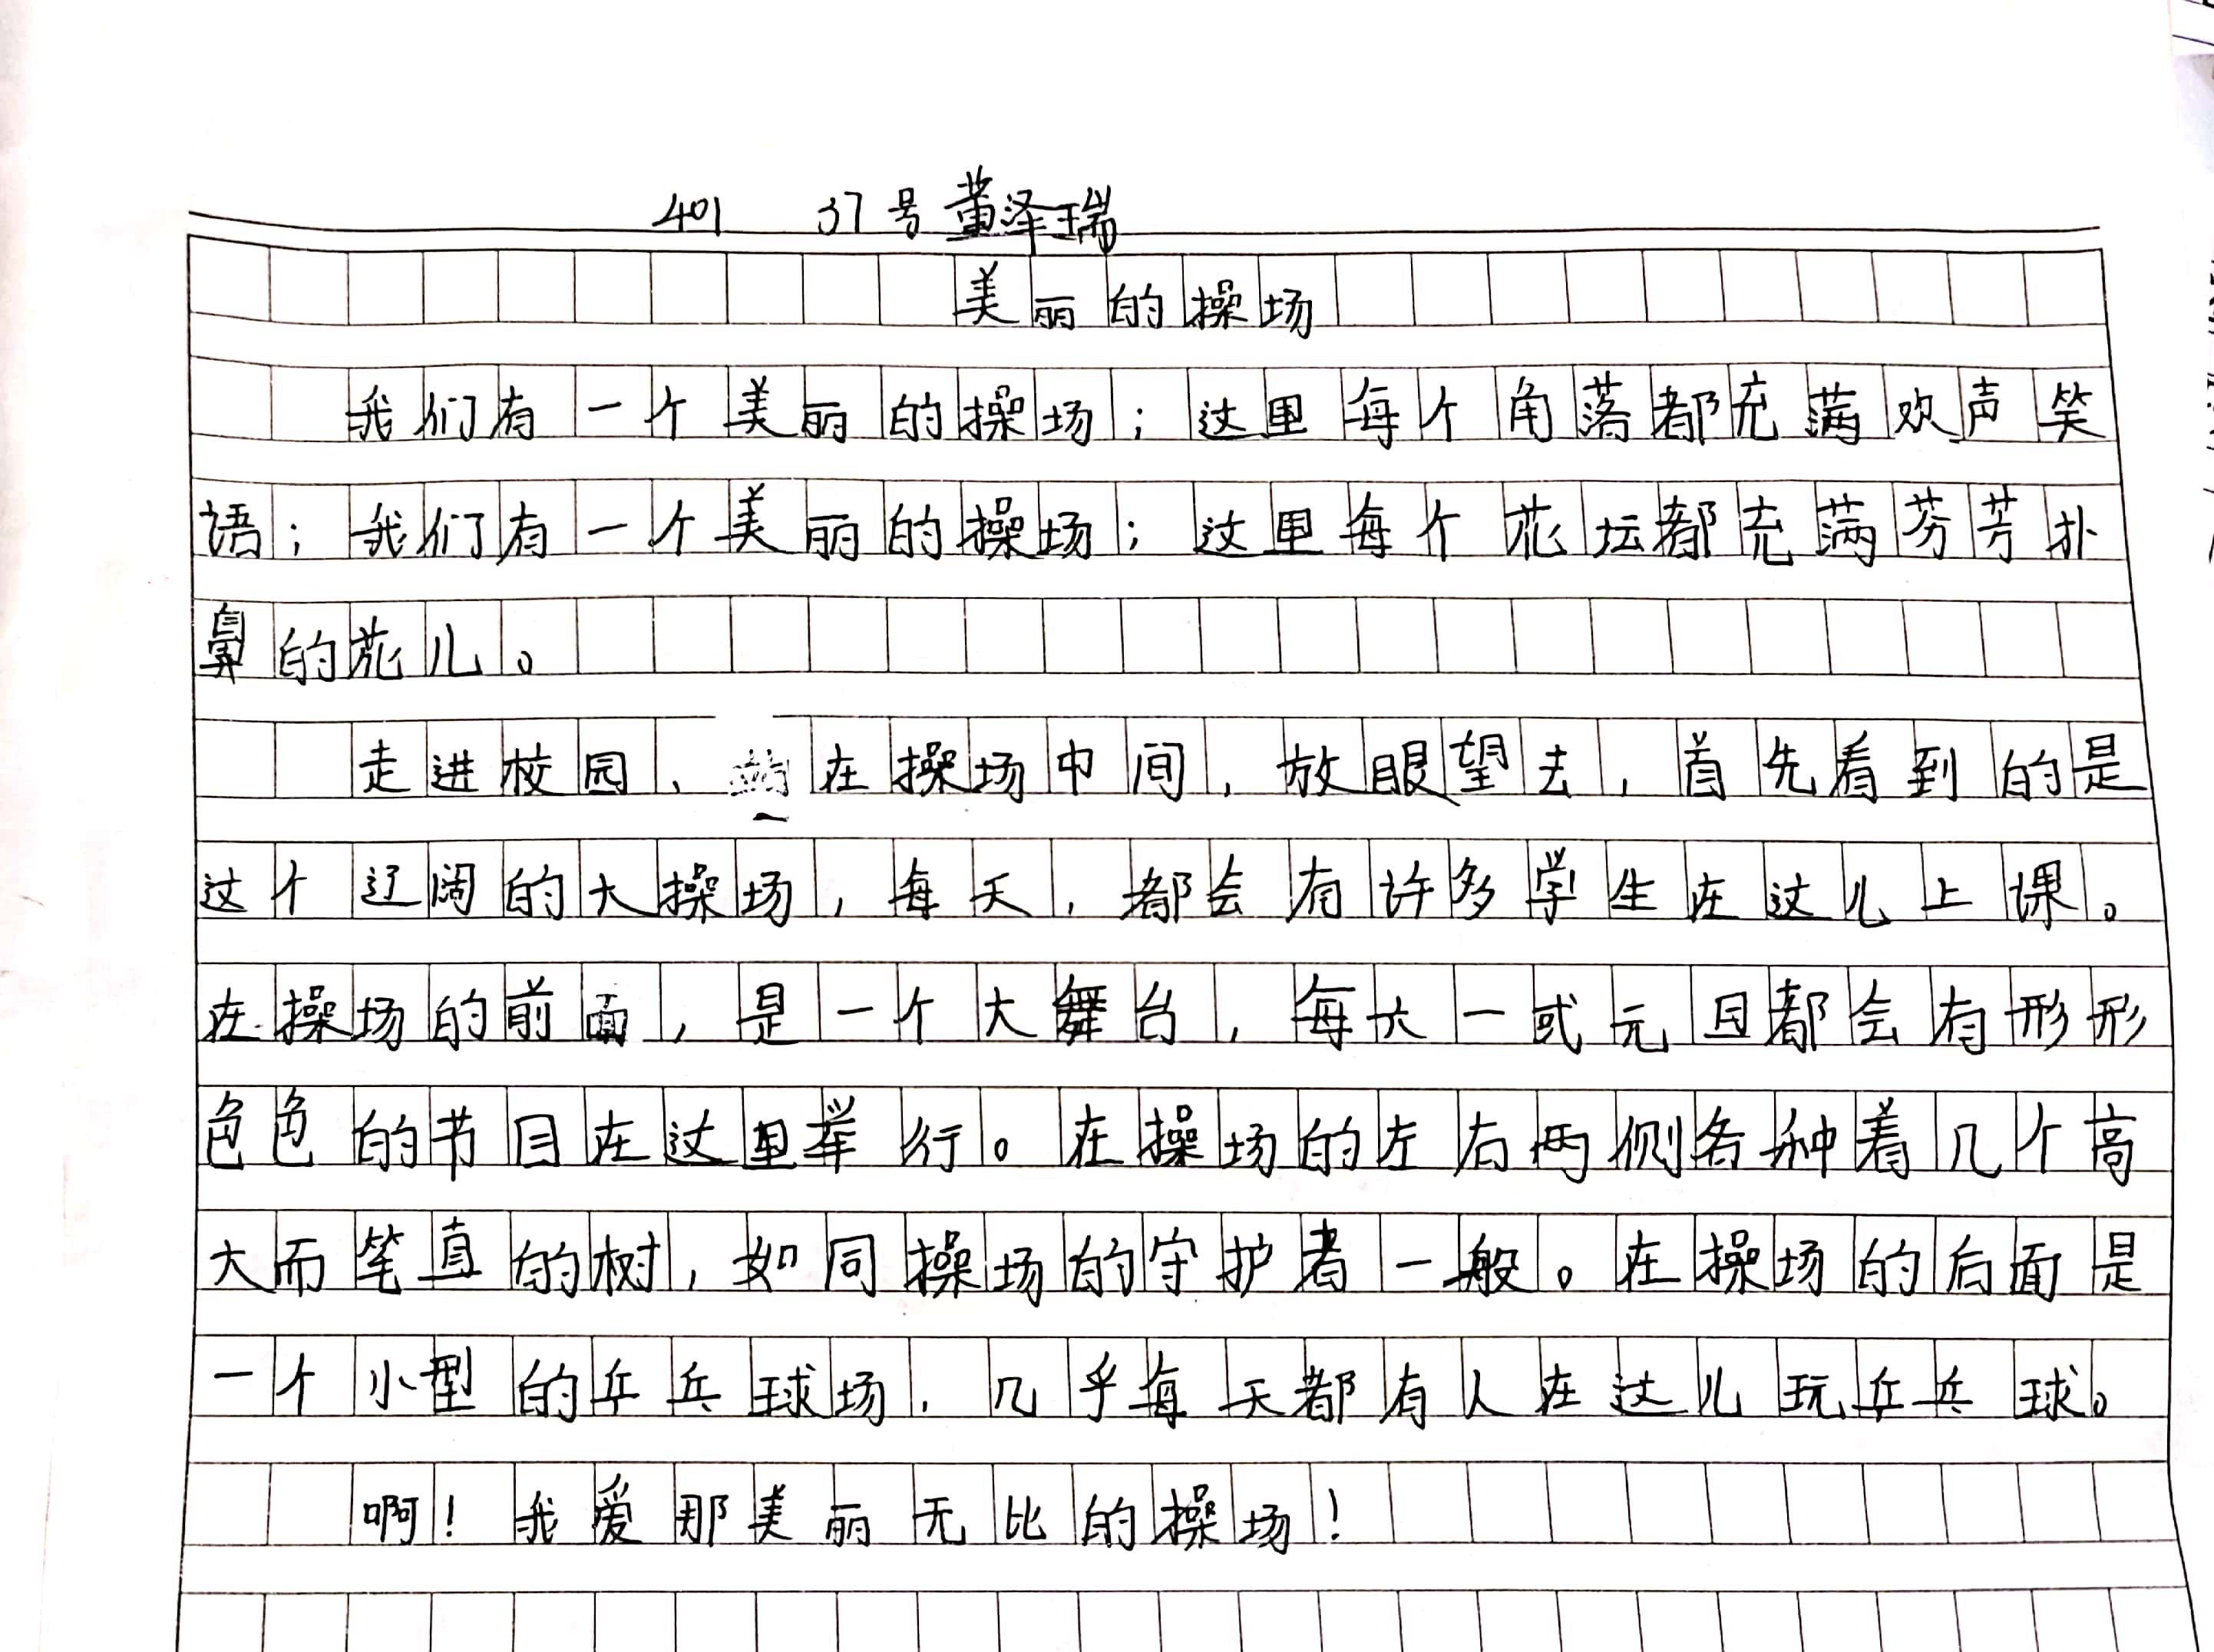 401 37号董泽瑞
美丽的操场
我们有一个美丽的操场；这里每个角落都充满欢声笑
语；我们有一个美丽的操场；这里每个花坛都充满芬芳扑
鼻的花儿。
走进校园、在操场中间，放眼望去，首先看到的是
这个辽阔的大操场，每天，都会有许多学生在这儿上课。
在操场的前面，是一个大舞台，每六一或元旦都会有形形
色色的节目在这里举行。在操场的左右两侧各种着几个高
大而笔直的树，如同操场的守护者一般。在操场的后面是
一个小型的乒乓球场，几乎每天都有人在这儿玩乒乓球。
啊！我爱那美丽无比的操场！